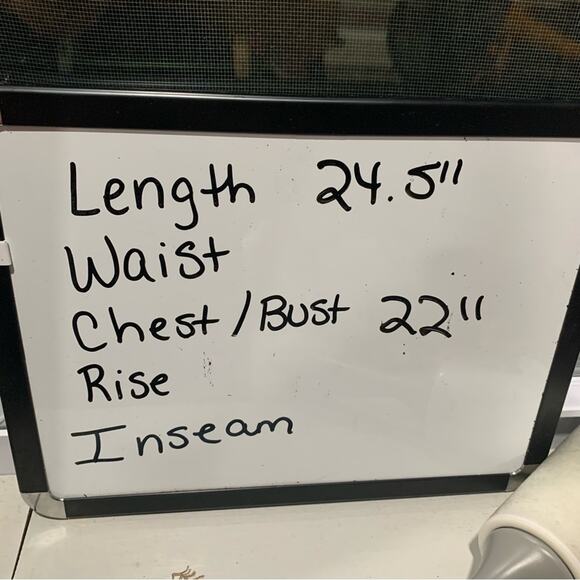 Length 24.5"
Waist
Chest/Bust 22"
Rise
Inseam